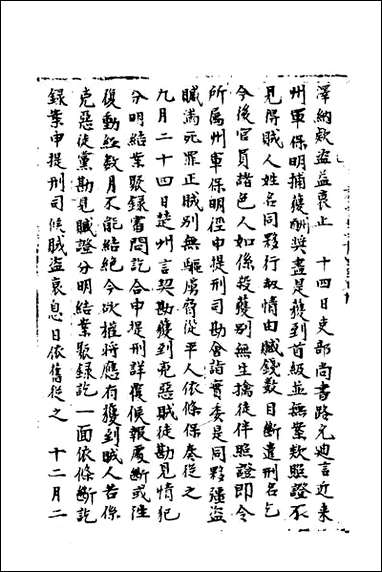 澤納欵盜益衰止　十四日吏部尚書路允迪言近来
州軍保明捕獲酬奬盡是獲到首級並無案欵照證不
見得賊人姓名同夥行刼情由贓錢數目斷遣刑名乞
今後官員諸色人如係殺獲別無生擒徒伴照證即令
所属州軍保明徑申提刑司勘會詣實委是同夥彊盜
贓滿元罪正賊別無驅虜脅從平人依條保奏從之
九月二十四日楚州言契勘獲到兇惡賊徒勘見情犯
分明結案聚録書問訖合申提刑詳覆候報處斷或往
復動經數月不能結絶今欲權將應有獲到賊人若係
兇惡徒黨勘見贓證分明結案聚録訖一面依條斷訖
録案申提刑司候賊盜衰息日依舊從之　十二月二